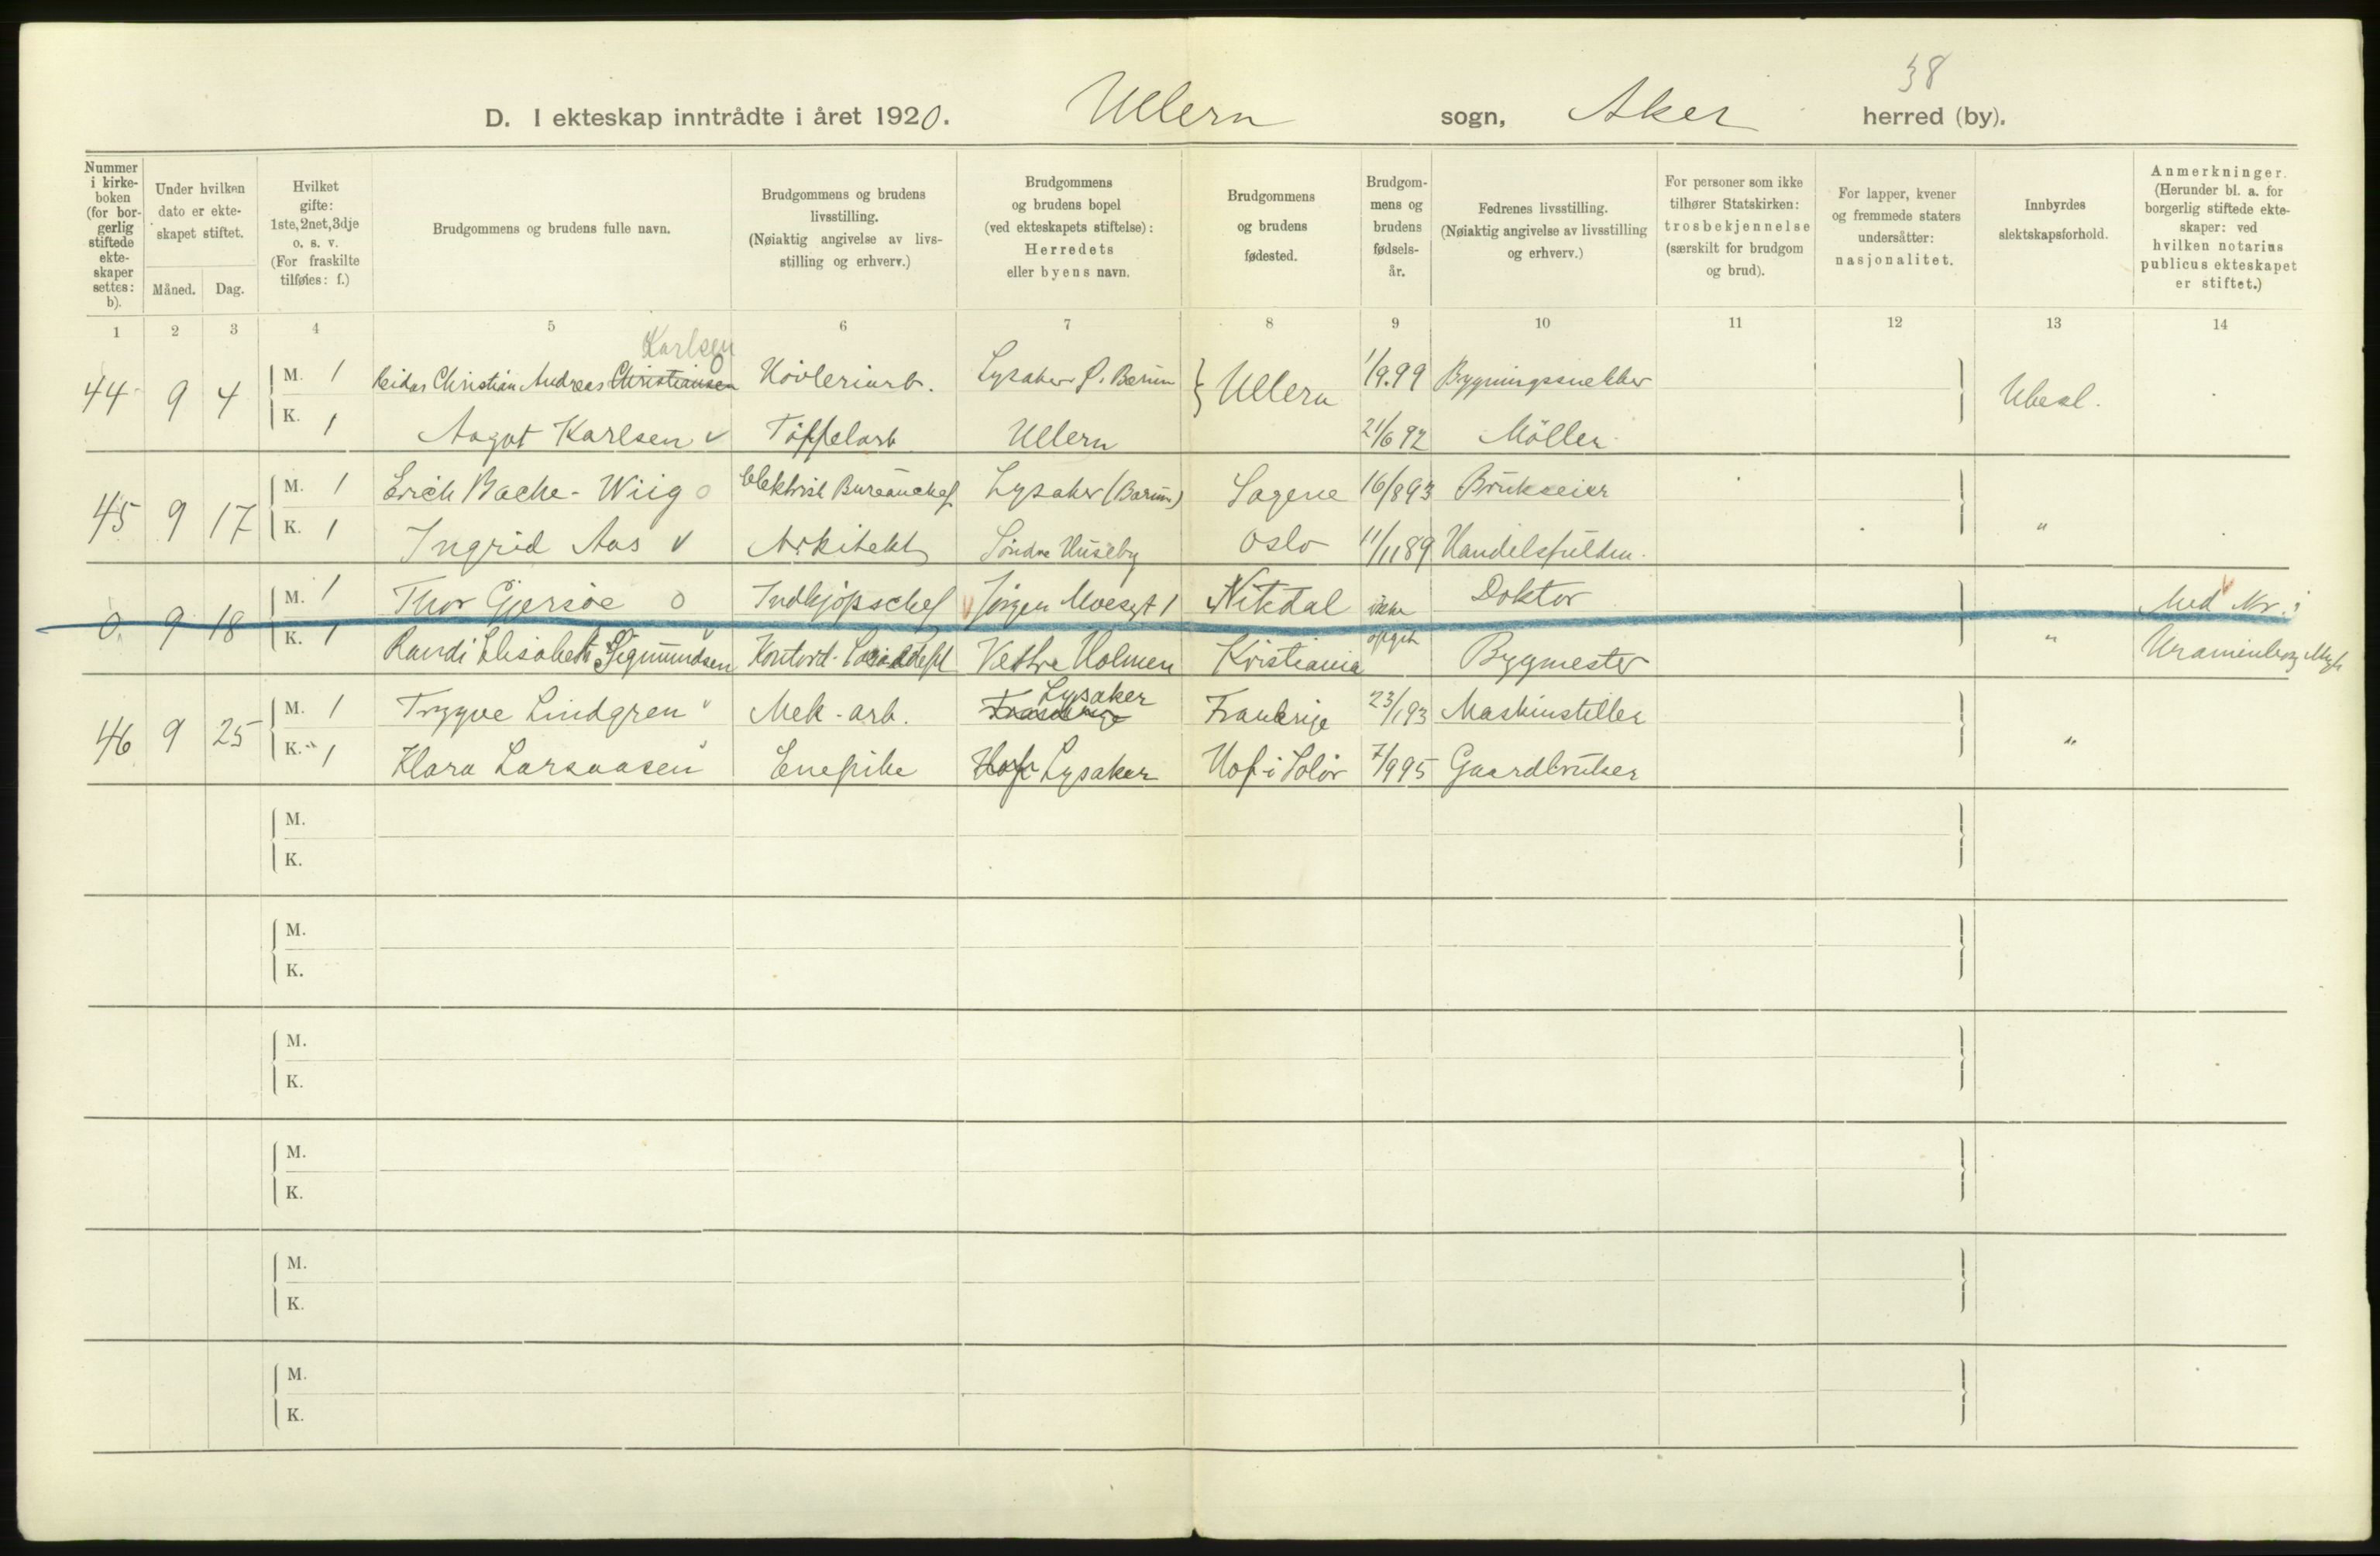 38
D. I ekteskap inntrådte i året 1920. Ullern sogn, Aker herred (by).
Nummer i kirke- boken (for bor- gerlig stiftede ekte- skaper settes: b).
Under hvilken dato er ekte- skapet stiftet.
Måned. Dag.
Hvilket gifte: 1ste, 2net, 3dje o. s. v. (For fraskilte tilføies: f.)
Brudgommens og brudens fulle navn.
Brudgommens og brudens livsstilling. (Nøiaktig angivelse av livs- stilling og erhverv.)
Brudgommens og brudens bopel (ved ekteskapets stiftelse): Herredets eller byens navn.
Brudgommens og brudens fødested.
Brudgom- mens og brudens fødsels- år.
Fedrenes livsstilling. (Nøiaktig angivelse av livsstilling og erhverv.)
For personer som ikke tilhører Statskirken: trosbekjennelse (særskilt for brudgom og brud).
For lapper, kvener og fremmede staters undersåtter: nasjonalitet.
Innbyrdes slektskapsforhold.
Anmerkninger. (Herunder bl. a. for borgerlig stiftede ekte- skaper: ved hvilken notarius publicus ekteskapet er stiftet.)
1 2 3 4 5 6 7 8 9 10 11 12 13 14
Karlsen
44 9 4 M. 1 Reidar Christian Andreas Christiansen Høvleriarb. Lysaker p. Bærum } Ullern 1/9.99 Bygningssnekker Ubesl.
K. 1 Aagot Karlsen v Tøffelarb Ullern 21/6 92 Möller
45 9 17 M. 1 Erich Bache-Wiig o Elektrisk Bureauchef Lysaker (Bærum) Sagene 16/893 Brukseier "
K. 1 Ingrid Aas v Arkitekt Søndre Huseby Oslo 11/1189 Handelsfuldm.
0. 9 18 M. 1 Thor Gjersøe o Indkjøpschef Jørgen Moesgt 1 Nitedal ikke Doktor Med Nr. i
K. 1 Randi Elisabeth Sigmundsen v Kontord. Vestre Holmen Kristiania opgit Bygmester " Uranienborg
46 9 25 M. 1 Trygve Lindgren Mek-arb. Lysaker Frankrige 23/193 Maskinstiller "
K. 1 Klara Larsaasen Enepike Hof Lysaker Hof i Solør 7/995 Gaardbruker
M.
K.
M.
K.
M.
K.
M.
K.
M.
K.
M.
K.